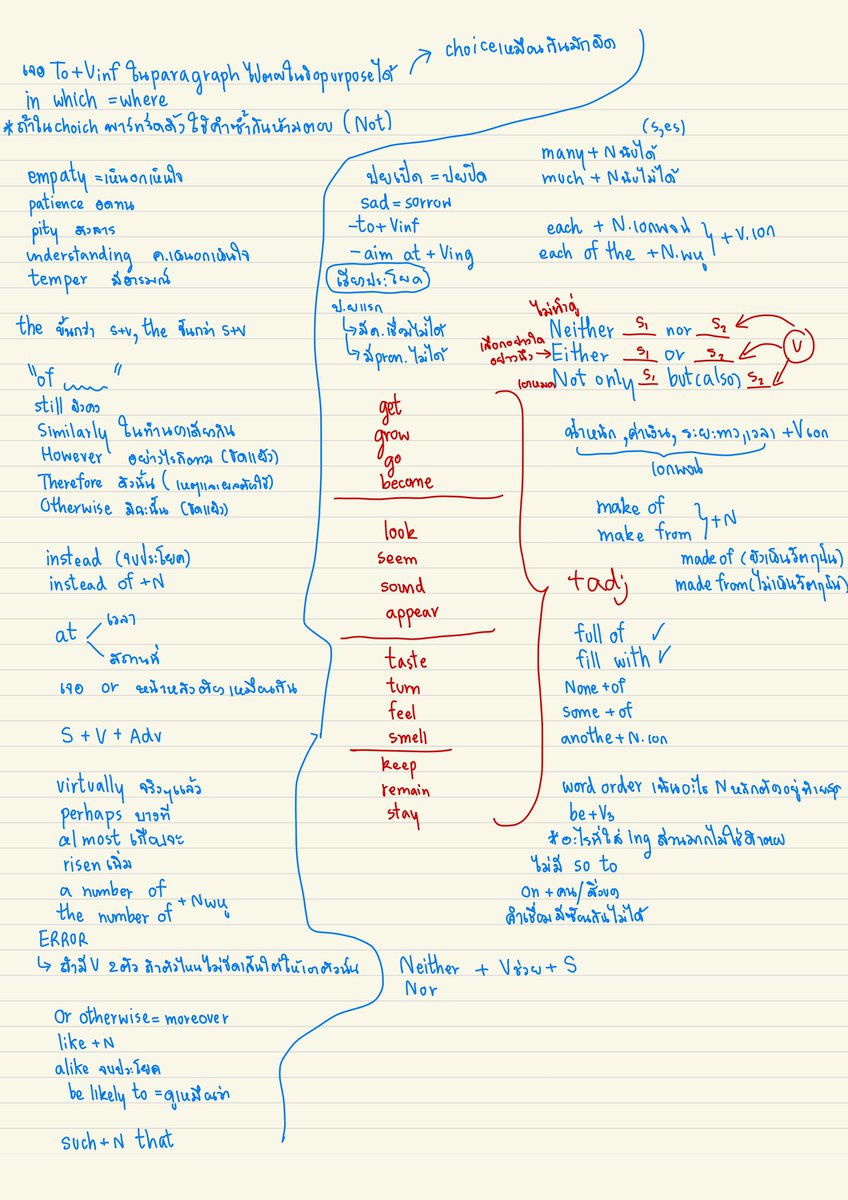 เจอ To+Vinf ในparagraph ไปตอบในข้อpurposeได้
choiceเหมือนกันมักผิด
in which =where
*ถ้าในchoich พาร์ทรีดดิ้ง ใช้คำซ้ำกันห้ามตอบ (Not)
empaty =เห็นอกเห็นใจ
patience อดทน
pity สงสาร
understanding ค.เห็นอกเห็นใจ
temper มีอารมณ์
the ขั้นกว่า s+v, the ขั้นกว่า s+v
"of"
still ยังคง
Similarly ในทำนองเดียวกัน
However อย่างไรก็ตาม (ขัดแย้ง)
Therefore ดังนั้น (เหตุและผลต้องใช้)
Otherwise มิฉะนั้น (ขัดแย้ง)
instead (จบประโยค)
instead of +N
at
เวลา
สถานที่
เจอ or หน้าหลังต้องเหมือนกัน
S + V + Adv
virtually จริงๆแล้ว
perhaps บางที
almost เกือบจะ
risen เพิ่ม
a number of
the number of
+ Nพหู
ERROR
ถ้ามี V 2ตัว ถ้าตัวไหนไม่ขีดเส้นใต้ให้เอาตัวนั้น
Or otherwise = moreover
like +N
alike จบประโยค
be likely to =ดูเหมือนว่า
such+N that
ปยเปิด = ปยปิด
sad = sorrow
-to+Vinf
-aim at +Ving
เรียงประโยค
ป.ยแรก
มีค.เชื่อมไม่ได้
มีpron. ไม่ได้
get
grow
go
become
look
seem
sound
appear
taste
turn
feel
smell
keep
remain
stay
+adj
(s,es)
many+ Nนับได้
much + Nนับไม่ได้
each + N.เอกพจน์
each of the +N.พหู
+V.เอก
ไม่ทั้งคู่
Neither S1 nor S2
เลือกอย่างใด
อย่างนึง
Either S1 or S2
เอาหมด
Not only S1 but(also) S2
V
น้ำหนัก,ค่าเงิน,ระยะทาง,เวลา +Vเอก
เอกพจน์
make of
make from
+N
made of (ยังเห็นวัตถุเดิม)
made from(ไม่เห็นวัตถุเดิม)
full of ✓
fill with ✓
None+of
some + of
anothe+N.เอก
be+V3
*อะไรที่ใส่ Ing ส่วนมากไม่ใช่คำตอบ
ไม่มี so to
on +คน/สิ่งของ
คำเชื่อมมีซ้อนกันไม่ได้
Neither + Vช่วย + S
Nor